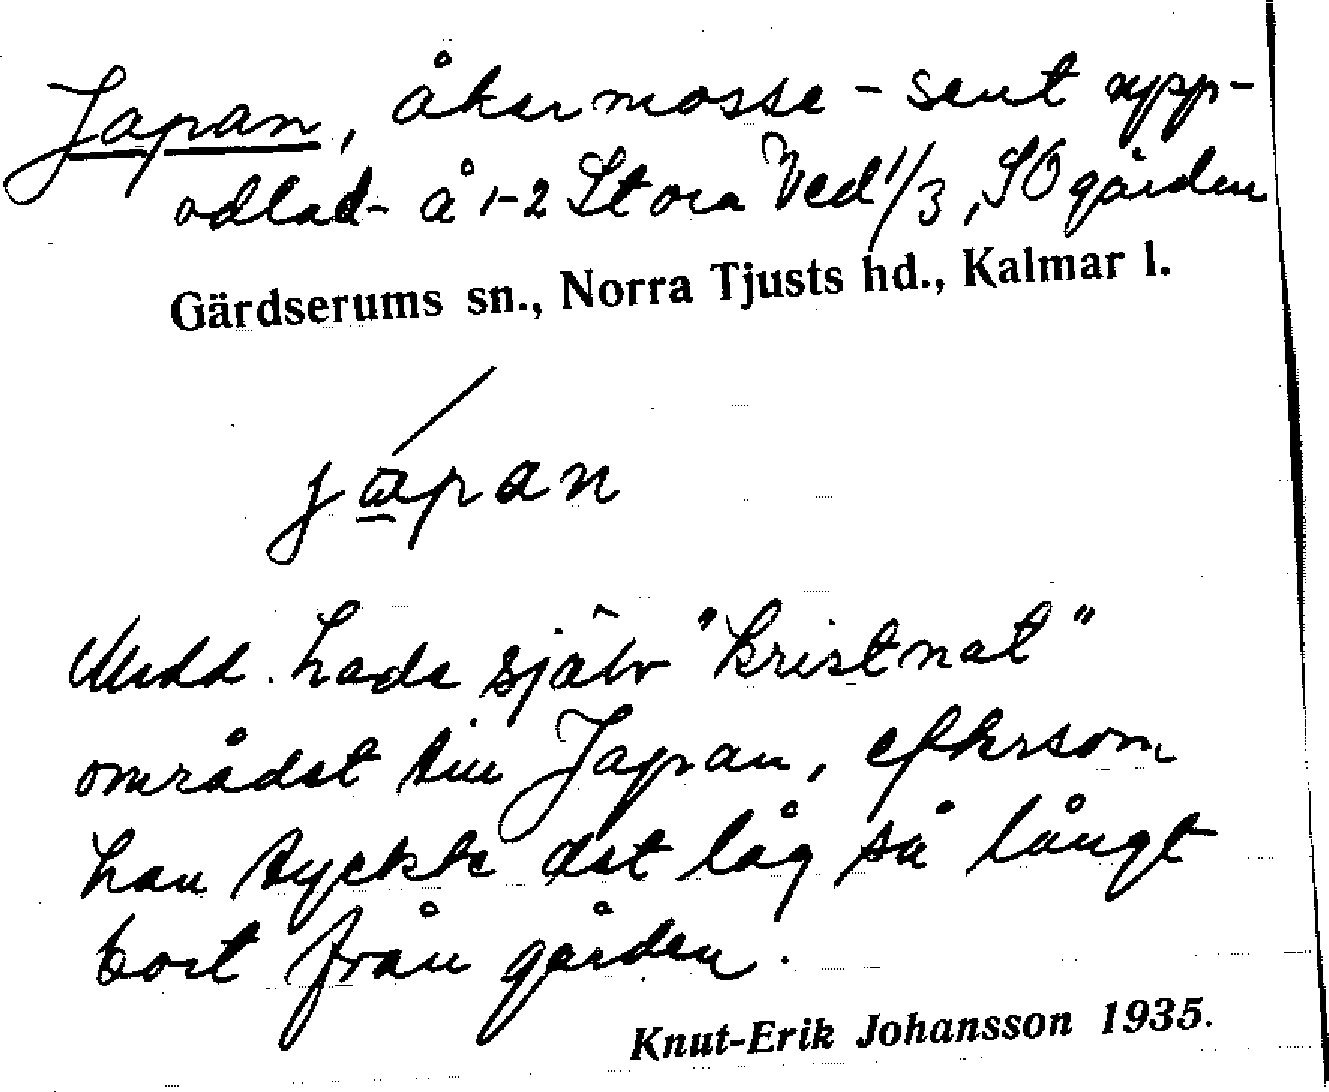 Japan, åkermosse - sent upp-
odlad - å 1-2 Stora Ved 1/3, SÖgården
Gärdserums sn., Norra Tjusts hd., Kalmar l.
japan
Medd. hade själv "kristnat"
området till Japan, eftersom
han tyckte det låg så långt
bort från gården.
Knut-Erik Johansson 1935.